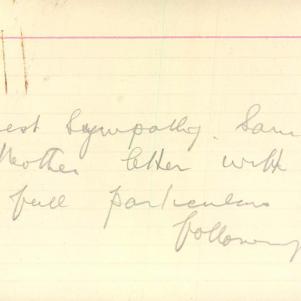 est Sympathy. Sam
Mother letter with
full particulars
following